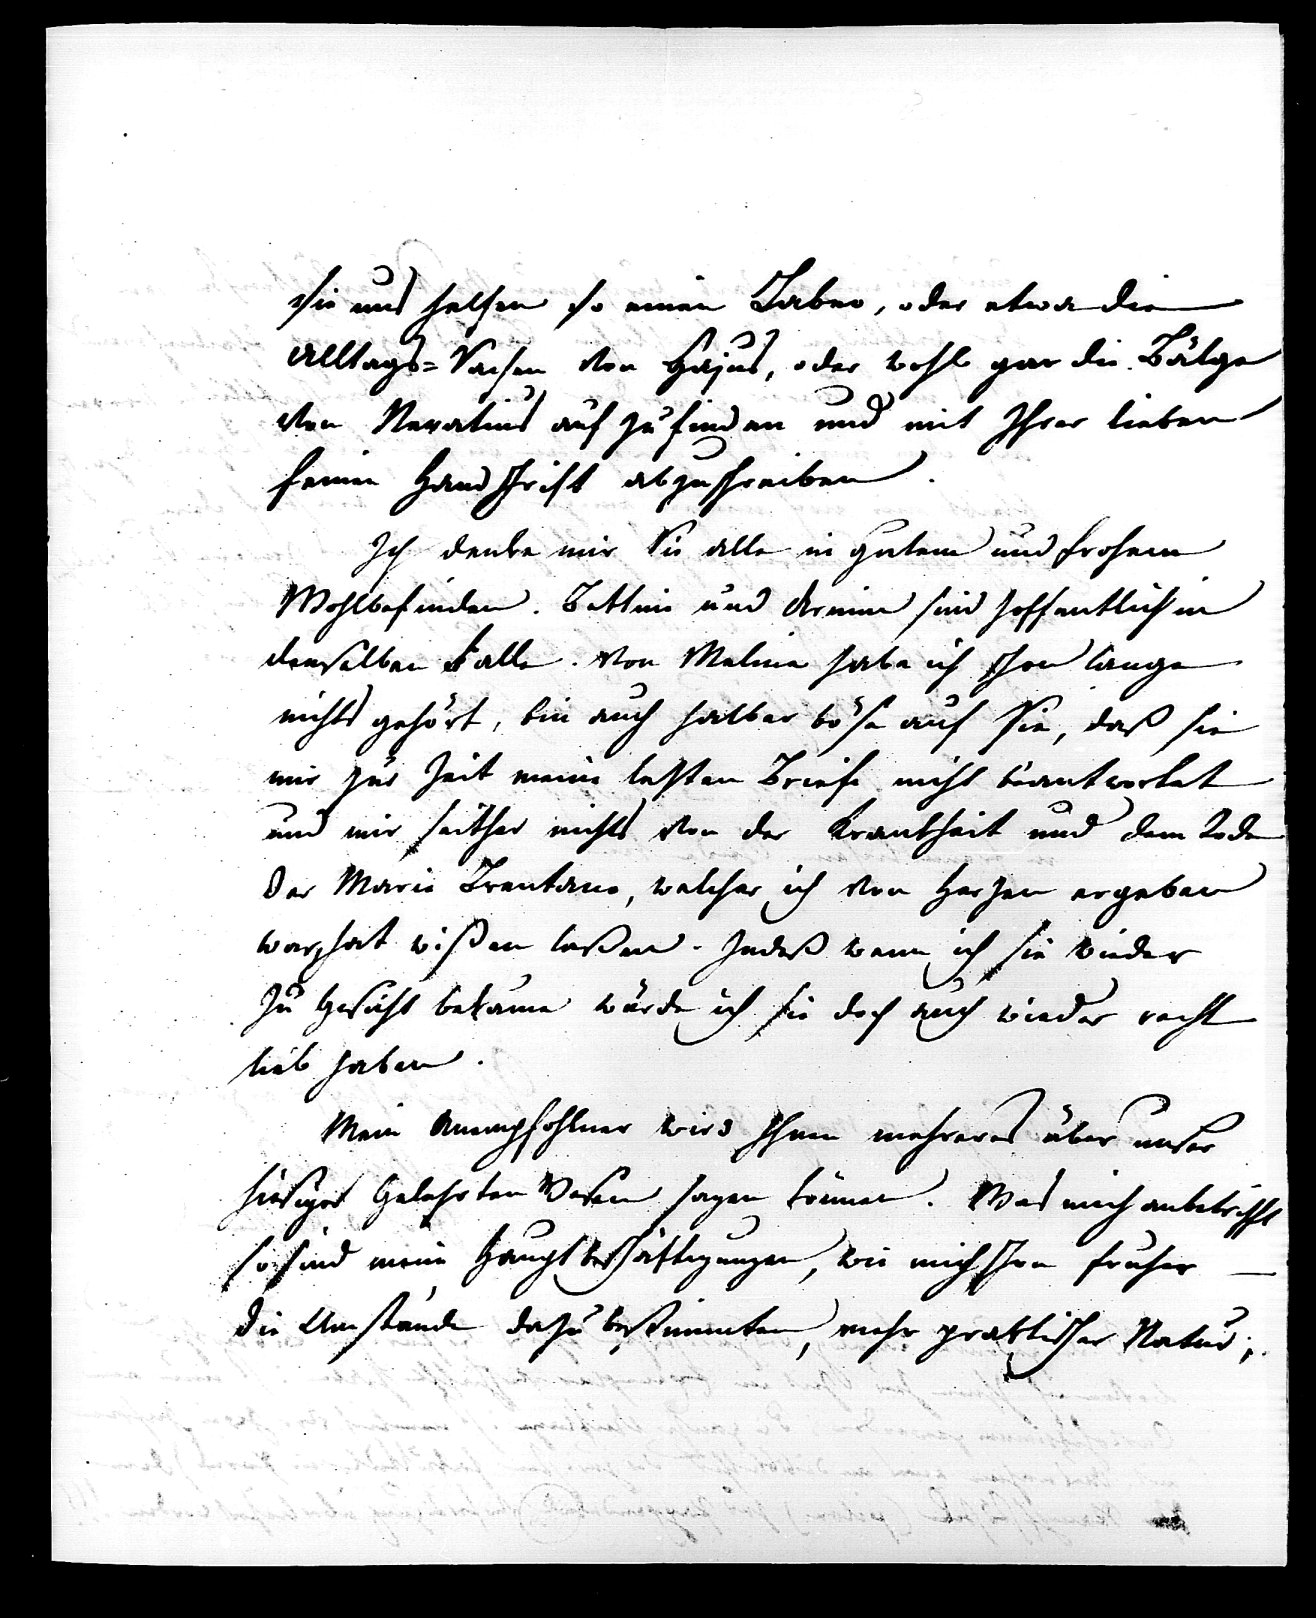 Sie uns helfen so einen Labeo, oder etwa die
Alltags=Sachen von Gajus, oder wohl gar die Bälge
von Neratius auf zu finden und mit Ihrer lieben
feinen Handschrift abzuschreiben.
Ich denke mir Sie alle in gutem und frohem
Wohlbefinden. Bettine und Armine sind hoffentlich in
demselben Falle. Von Meline habe ich schon lange
nichts gehört, bin auch halber böse auf Sie, daß sie
mir zur Zeit meine letzten Briefe nicht beantwortet
und mir seither nichts von der Krankheit und dem Tode
der Marie Brentano, welcher ich von Herzen ergeben
war, hat wißen laßen. Indeß wenn ich sie wieder
zu Gesicht bekäme würde ich sie doch auch wieder recht
lieb haben.
Mein Anempfohlner wird Ihnen mehreres über unser
hiesiges Gelehrten Wesen sagen können. Was mich anbetrifft
so sind meine Hauptbeschäftigungen, wie mich schon früher
die Umstände dazu bestimmten, mehr praktischer Natur;